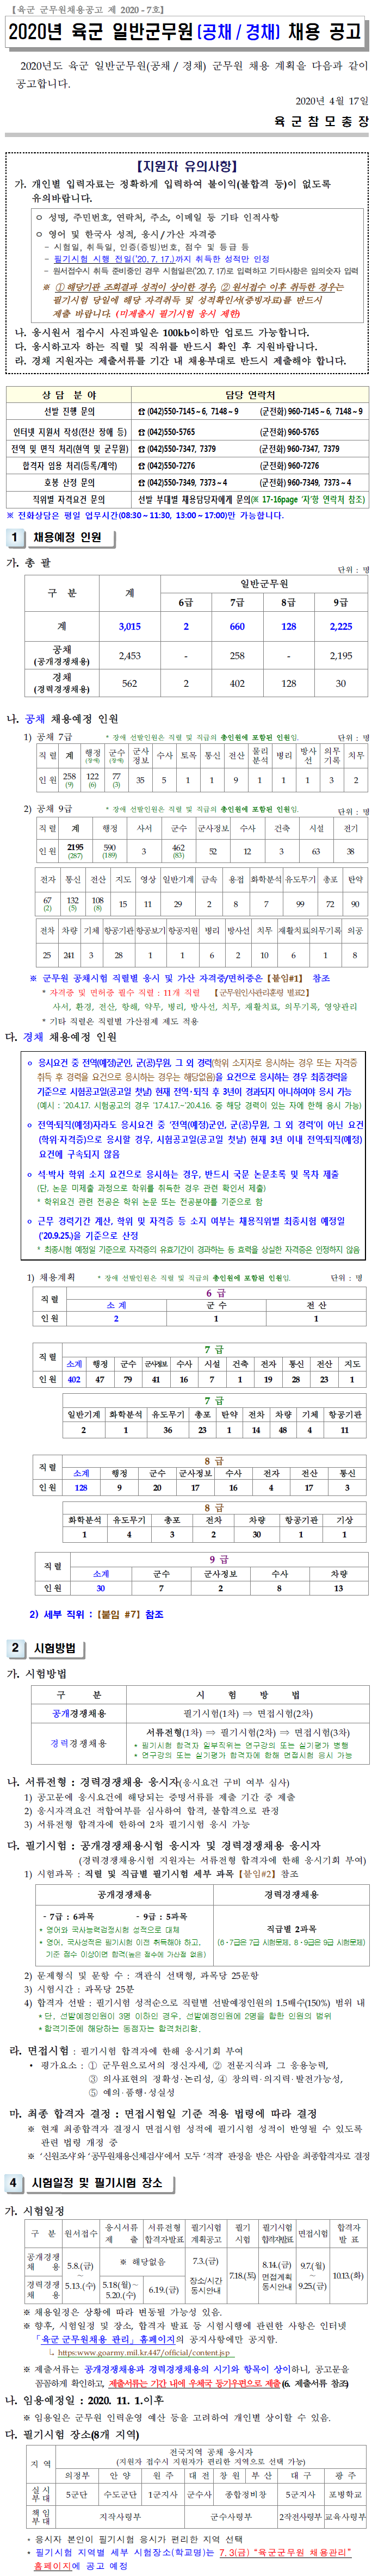 【육군 군무원채용공고 제 2020 - 7호】
2020년 육군 일반군무원(공채 / 경채) 채용 공고
2020년도 육군 일반군무원(공채 / 경채) 군무원 채용 계획을 다음과 같이
공고합니다.
2020년 4월 17일
육 군 참 모 총 장
【지원자 유의사항】
가. 개인별 입력자료는 정확하게 입력하여 불이익(불합격 등)이 없도록
유의바랍니다.
ㅇ 성명, 주민번호, 연락처, 주소, 이메일 등 기타 인적사항
ㅇ 영어 및 한국사 성적, 응시/가산 자격증
- 시험일, 취득일, 인증(증빙)번호, 점수 및 등급 등
- 필기시험 시행 전일('20. 7. 17.)까지 취득한 성적만 인정
- 원서접수시 취득 준비중인 경우 시험일은('20. 7. 17)로 입력하고 기타사항은 임의숫자 입력
※ ① 해당기관 조회결과 성적이 상이한 경우, ② 원서접수 이후 취득한 경우는
필기시험 당일에 해당 자격취득 및 성적확인서(증빙자료)를 반드시
제출 바랍니다. (미제출시 필기시험 응시 제한)
나. 응시원서 접수시 사진파일은 100kb이하만 업로드 가능합니다.
다. 응시하고자 하는 직렬 및 직위를 반드시 확인 후 지원바랍니다.
라. 경채 지원자는 제출서류를 기간 내 채용부대로 반드시 제출해야 합니다.
상 담 분 야 담당 연락처
선발 진행 문의 ☎ (042)550-7145 ~ 6, 7148 ~ 9 (군전화) 960-7145 ~ 6, 7148 ~ 9
인터넷 지원서 작성(전산 장애 등) ☎ (042)550-5765 (군전화) 960-5765
전역 및 면직 처리(현역 및 군무원) ☎ (042)550-7347, 7379 (군전화) 960-7347, 7379
합격자 임용 처리(등록/계약) ☎ (042)550-7276 (군전화) 960-7276
호봉 산정 문의 ☎ (042)550-7349, 7373 ~ 4 (군전화) 960-7349, 7373 ~ 4
직위별 자격요건 문의 선발 부대별 채용담당자에게 문의(※ 17-16page '자'항 연락처 참조)
※ 전화상담은 평일 업무시간(08:30 ~ 11:30, 13:00 ~ 17:00)만 가능합니다.
1 채용예정 인원
가. 총 괄
단위 : 명
구 분 계 일반군무원
6급 7급 8급 9급
계 3,015 2 660 128 2,225
공채
(공개경쟁채용) 2,453 - 258 - 2,195
경채
(경력경쟁채용) 562 2 402 128 30
나. 공채 채용예정 인원
1) 공채 7급 * 장애 선발인원은 직렬 및 직급의 총인원에 포함된 인원임. 단위 : 명
직 렬 계 행정(장애) 군수(장애) 군사정보 수사 지도 통신 전산 물리분석 병리 방사선 의무기록 치무
인 원 258(9) 122(6) 77(3) 35 5 1 1 9 1 1 1 3 2
2) 공채 9급 * 장애 선발인원은 직렬 및 직급의 총인원에 포함된 인원임. 단위 : 명
직 렬 계 행정 사서 군수 군사정보 수사 건축 시설 전기
인 원 2195(287) 590(189) 3 462(83) 52 12 3 63 38
전자 통신 전산 지도 영상 일반기계 금속 용접 화학분석 유도무기 총포 탄약
67(2) 132(5) 108(8) 15 11 29 2 8 7 99 72 90
전차 차량 기체 항공기관 항공보기 항공지원 병리 방사선 치무 재활치료 의무기록 의공
25 241 3 28 1 1 6 2 10 6 1 8
※ 군무원 공채시험 직렬별 응시 및 가산 자격증/면허증은 【붙임#1】 참조
* 자격증 및 면허증 필수 직렬 : 11개 직렬 【군무원인사관리훈령 별표2】
사서, 환경, 전산, 항해, 약무, 병리, 방사선, 치무, 재활치료, 의무기록, 영양관리
* 기타 직렬은 직렬별 가산점제 제도 적용
다. 경채 채용예정 인원
ㅇ 응시요건 중 전역(예정)군인, 군(공)무원, 그 외 경력(학위 소지자로 응시하는 경우 또는 자격증
취득 후 경력을 요건으로 응시하는 경우는 해당없음)을 요건으로 응시하는 경우 최종경력을
기준으로 시험공고일(공고일 첫날) 현재 전역·퇴직 후 3년이 경과되지 아니하여야 응시 가능
(예시 : '20.4.17. 시험공고의 경우 '17.4.17.~'20.4.16. 중 해당 경력이 있는 자에 한해 응시 가능)
ㅇ 전역·퇴직(예정)자라도 응시요건 중 '전역(예정)군인, 군(공)무원, 그 외 경력'이 아닌 요건
(학위·자격증)으로 응시할 경우, 시험공고일(공고일 첫날) 현재 3년 이내 전역·퇴직(예정)
요건에 구속되지 않음
ㅇ 석·박사 학위 소지 요건으로 응시하는 경우, 반드시 국문 논문초록 및 목차 제출
(단, 논문 미제출 과정으로 학위를 취득한 경우 관련 확인서 제출)
* 학위요건 관련 전공은 학위 논문 또는 전공분야를 기준으로 함
ㅇ 근무 경력기간 계산, 학위 및 자격증 등 소지 여부는 채용직위별 최종시험 예정일
('20.9.25.)을 기준으로 산정
* 최종시험 예정일 기준으로 자격증의 유효기간이 경과하는 등 효력을 상실한 자격증은 인정하지 않음
1) 채용계획 * 장애 선발인원은 직렬 및 직급의 총인원에 포함된 인원임. 단위 : 명
직 렬 6 급
소 계 군 수 전 산
인 원 2 1 1
직 렬 7 급
소계 행정 군수 군사정보 수사 시설 건축 전자 통신 전산 지도
인 원 402 47 79 41 16 7 1 19 28 23 1
7 급
일반기계 화학분석 유도무기 총포 탄약 전차 차량 기체 항공기관
2 1 36 23 1 14 48 4 11
직 렬 8 급
소계 행정 군수 군사정보 수사 전자 전산 통신
인 원 128 9 20 17 16 4 17 3
8 급
화학분석 유도무기 총포 전차 차량 항공기관 기상
1 4 3 2 30 1 1
직 렬 9 급
소계 군수 군사정보 수사 차량
인 원 30 7 2 8 13
2) 세부 직위 : 【붙임 #7】 참조
2 시험방법
가. 시험방법
구 분 시 험 방 법
공개경쟁채용 필기시험(1차) ⇒ 면접시험(2차)
경력경쟁채용 서류전형(1차) ⇒ 필기시험(2차) ⇒ 면접시험(3차)
* 필기시험 합격자 일부직위는 연구강의 또는 실기평가 병행
* 연구강의 또는 실기평가 합격자에 한해 면접시험 응시 가능
나. 서류전형 : 경력경쟁채용 응시자(응시요건 구비 여부 심사)
1) 공고문에 응시요건에 해당되는 증명서류를 제출 기간 중 제출
2) 응시자격요건 적합여부를 심사하여 합격, 불합격으로 판정
3) 서류전형 합격자에 한하여 2차 필기시험 응시 가능
다. 필기시험 : 공개경쟁채용시험 응시자 및 경력경쟁채용 응시자
(경력경쟁채용시험 지원자는 서류전형 합격자에 한해 응시기회 부여)
1) 시험과목 : 직렬 및 직급별 필기시험 세부 과목 【붙임#2】 참조
공개경쟁채용 경력경쟁채용
- 7급 : 6과목 - 9급 : 5과목
* 영어와 국사능력검정시험 성적으로 대체
* 영어, 국사성적은 필기시험 이전 취득해야 하고,
기준 점수 이상이면 합격(높은 점수에 가산점 없음)
직급별 2과목
(6·7급은 7급 시험문제, 8·9급은 9급 시험문제)
2) 문제형식 및 문항 수 : 객관식 선택형, 과목당 25문항
3) 시험시간 : 과목당 25분
4) 합격자 선발 : 필기시험 성적순으로 직렬별 선발예정인원의 1.5배수(150%) 범위 내
* 단, 선발예정인원이 3명 이하인 경우, 선발예정인원에 2명을 합한 인원의 범위
* 합격기준에 해당하는 동점자는 합격처리함.
라. 면접시험 : 필기시험 합격자에 한해 응시기회 부여
• 평가요소 : ① 군무원으로서의 정신자세, ② 전문지식과 그 응용능력,
③ 의사표현의 정확성·논리성, ④ 창의력·의지력·발전가능성,
⑤ 예의·품행·성실성
마. 최종 합격자 결정 : 면접시험일 기준 적용 법령에 따라 결정
※ 현재 최종합격자 결정시 면접시험 성적에 필기시험 성적이 반영될 수 있도록
관련 법령 개정 중
※ '신원조사'와 '공무원채용신체검사'에서 모두 '적격' 판정을 받은 사람을 최종합격자로 결정
4 시험일정 및 필기시험 장소
가. 시험일정
구 분 원서접수 응시서류 제 출 서류전형 합격자발표 필기시험 계획공고 필기 시험 필기시험 합격자발표 면접시험 합격자 발 표
공개경쟁 채 용 5.8.(금) ~ 5.13.(수) ※ 해당없음 7.3.(금) 장소/시간 동시안내 7.18.(토) 8.14.(금) 면접계획 동시안내 9.7.(월) ~ 9.25.(금) 10.13.(화)
경력경쟁 채 용 5.18(월)~ 5.20.(수) 6.19.(금)
※ 채용일정은 상황에 따라 변동될 가능성 있음.
※ 향후, 시험일정 및 장소, 합격자 발표 등 시험시행에 관련한 사항은 인터넷
「육군 군무원채용 관리」홈페이지의 공지사항에만 공지함.
↳ https:www.goarmy.mil.kr:447/official/content.jsp
※ 제출서류는 공개경쟁채용과 경력경쟁채용의 시기와 항목이 상이하니, 공고문을
꼼꼼하게 확인하고, 제출서류는 기간 내에 우체국 등기우편으로 제출(6. 제출서류 참조)
나. 임용예정일 : 2020. 11. 1.이후
※ 임용일은 군무원 인력운영 예산 등을 고려하여 개인별 상이할 수 있음.
다. 필기시험 장소(8개 지역)
지 역 전국지역 공채 응시자
(지원자 접수시 지원자가 편리한 지역으로 선택 가능)
의정부 안 양 원 주 대 전 창 원 부 산 대 구 광 주
실 시 부 대 5군단 수도군단 1군지사 군수사 종합정비창 5군지사 포병학교
책 임 부 대 지작사령부 군수사령부 2작전사령부 교육사령부
* 응시자 본인이 필기시험 응시가 편리한 지역 선택
* 필기시험 지역별 세부 시험장소(학교명)는 7. 3(금) "육군군무원 채용관리"
홈페이지에 공고 예정